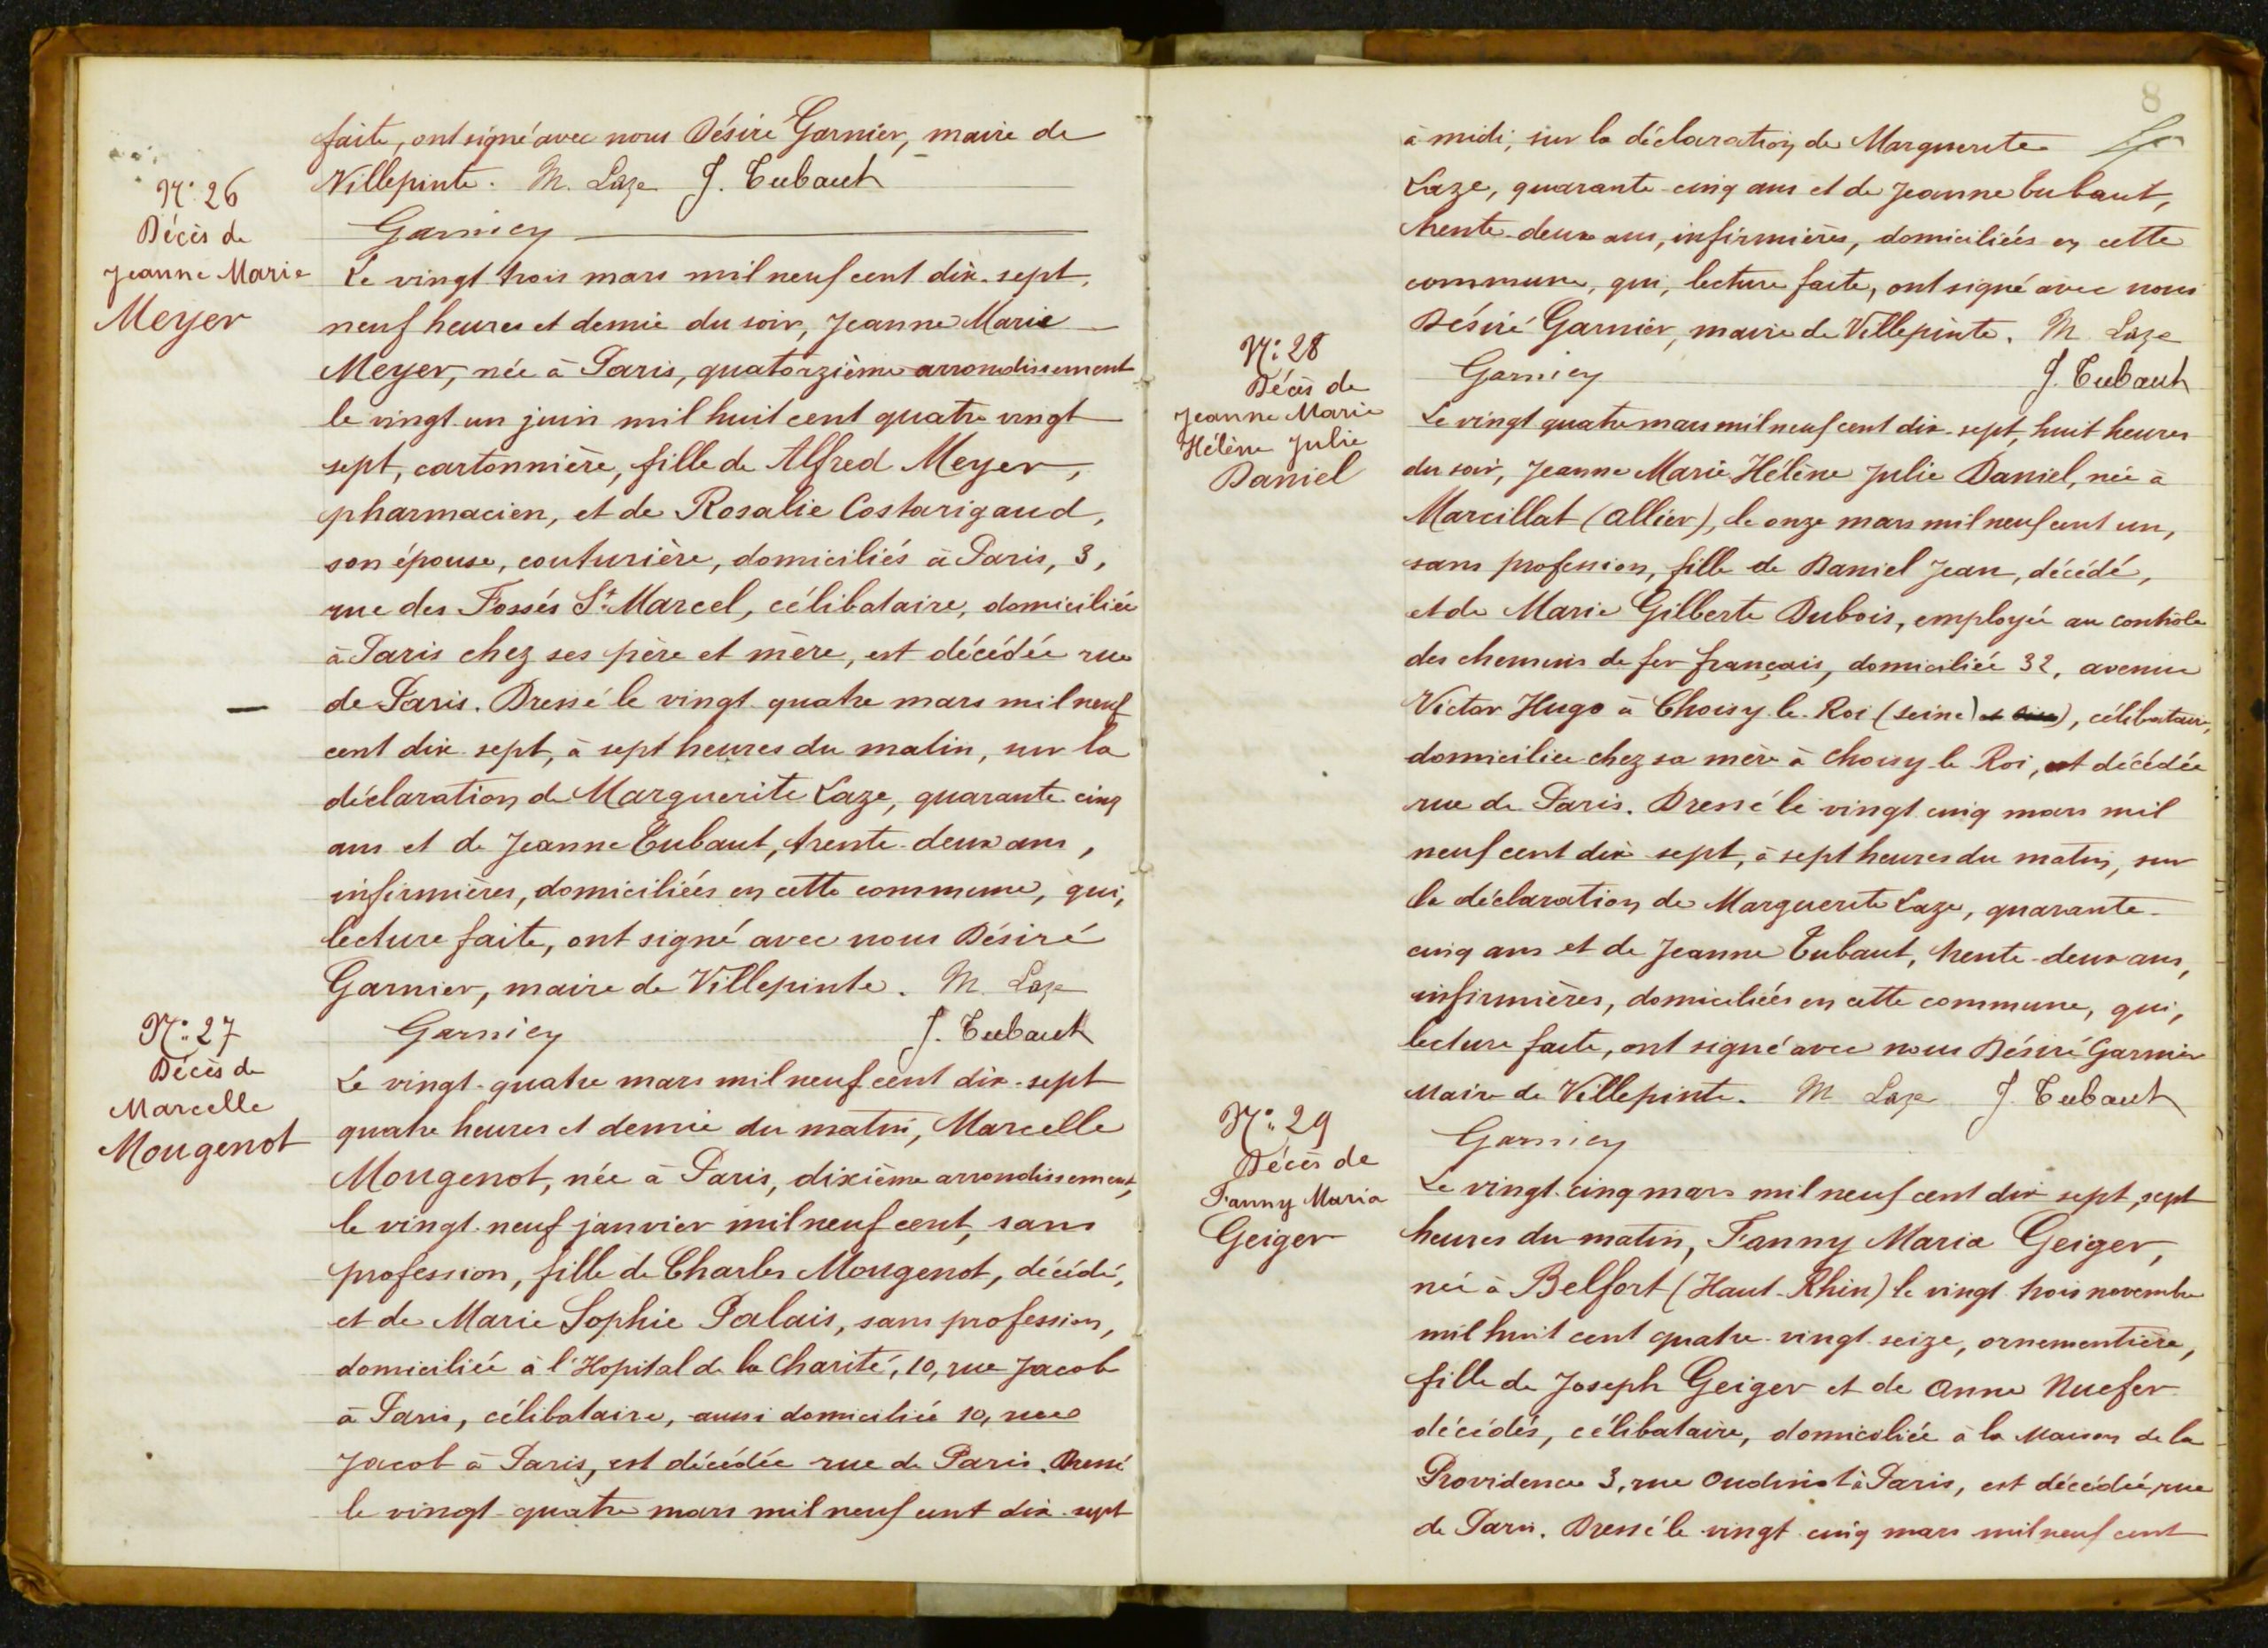 faite, ont signé avec nous Désiré Garnier, maire de
Villepinte. M. Laze J. Tubaut
Garnier
N° 26
Décès de
Jeanne Marie
Meyer
Le vingt trois mars mil neuf cent dix-sept,
neuf heures et demie du soir, Jeanne Marie
Meyer, née à Paris, quatorzième arrondissement
le vingt-un juin mil huit cent quatre vingt
sept, cartonnière, fille de Alfred Meyer,
pharmacien, et de Rosalie Costarigaud,
son épouse, couturière, domiciliés à Paris, 3,
rue des Fossés St Marcel, célibataire, domiciliée
à Paris chez ses père et mère, est décédée rue
de Paris. Dressé le vingt-quatre mars mil neuf
cent dix-sept, à sept heures du matin, sur la
déclaration de Marguerite Laze, quarante cinq
ans et de Jeanne Tubaut, trente-deux ans,
infirmières, domiciliées en cette commune, qui,
lecture faite, ont signé avec nous Désiré
Garnier, maire de Villepinte. M. Laze
Garnier J. Tubaut
N° 27
Décès de
Marcelle
Mougenot
Le vingt-quatre mars mil neuf cent dix-sept
quatre heures et demie du matin, Marcelle
Mougenot, née à Paris, dixième arrondissement,
le vingt-neuf janvier mil neuf cent, sans
profession, fille de Charles Mougenot, décédé,
et de Marie Sophie Palais, sans profession,
domiciliée à l'Hopital de la Charité, 10, rue Jacob
à Paris, célibataire, aussi domiciliée 10, rue
Jacob à Paris, est décédée rue de Paris. Dressé
le vingt-quatre mars mil neuf cent dix-sept
8
à midi, sur la déclaration de Marguerite
Laze, quarante-cinq ans et de Jeanne Tubaut,
trente-deux ans, infirmières, domiciliées en cette
commune, qui, lecture faite, ont signé avec nous
Désiré Garnier, maire de Villepinte. M. Laze
Garnier J. Tubaut
N° 28
Décès de
Jeanne Marie
Hélène Julie
Daniel
Le vingt quatre mars mil neuf cent dix-sept, huit heures
du soir, Jeanne Marie Hélène Julie Daniel, née à
Marcillat (Allier), le onze mars mil neuf cent un,
sans profession, fille de Daniel Jean, décédé,
et de Marie Gilberte Dubois, employée au contrôle
des chemins de fer français, domiciliée 32, avenue
Victor Hugo à Choisy-le-Roi (Seine) et Oise), célibataire,
domiciliée chez sa mère à Choisy le Roi, est décédée
rue de Paris. Dressé le vingt cinq mars mil
neuf cent dix sept, à sept heures du matin, sur
la déclaration de Marguerite Laze, quarante-
cinq ans et de Jeanne Tubaut, trente-deux ans,
infirmières, domiciliées en cette commune, qui,
lecture faite, ont signé avec nous Désiré Garnier
Maire de Villepinte. M Laze J. Tubaut
Garnier
N° 29
Décès de
Fanny Maria
Geiger
Le vingt-cinq mars mil neuf cent dix sept, sept
heures du matin, Fanny Maria Geiger,
née à Belfort (Haut-Rhin) le vingt trois novembre
mil huit cent quatre-vingt-seize, ornementière,
fille de Joseph Geiger et de Anne Nuefer
décédés, célibataire, domiciliée à la Maison de la
Providence 3, rue Oudinot à Paris, est décédée, rue
de Paris. Dressé le vingt-cinq mars mil neuf cent